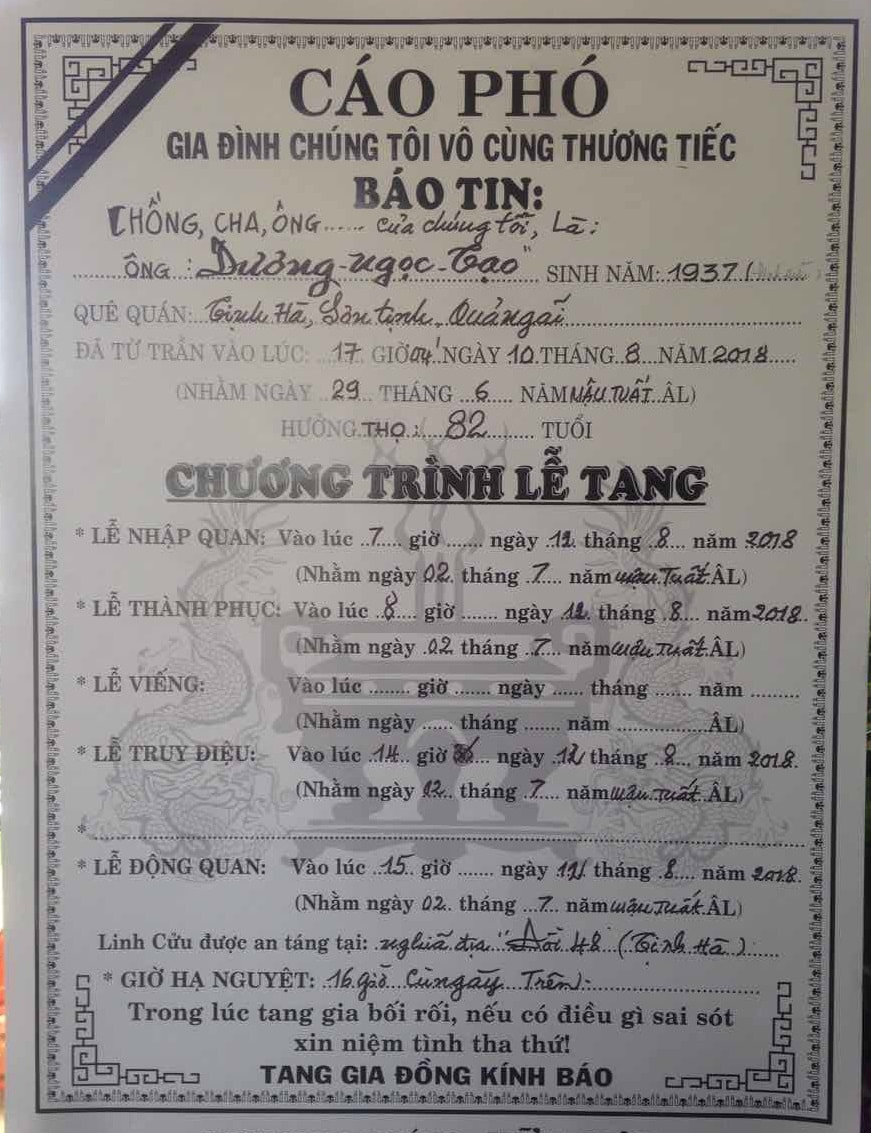 CÁO PHÓ
GIA ĐÌNH CHÚNG TÔI VÔ CÙNG THƯƠNG TIẾC
BÁO TIN:
CHỒNG, CHA, ÔNG...... của chúng tôi, Là:
ÔNG : "Dương-Ngọc-Tạo" SINH NĂM: 1937
QUÊ QUÁN: Tịnh Hà, Sơn tịnh, Quảng ngãi
ĐÃ TỪ TRẦN VÀO LÚC: 17 GIỜ 04' NGÀY 10 THÁNG 8 NĂM 2018
(NHẰM NGÀY 29 THÁNG 6 NĂM MẬU TUẤT ÂL)
HƯỞNG THỌ : 82 TUỔI
CHƯƠNG TRÌNH LỄ TANG
* LỄ NHẬP QUAN: Vào lúc 7 giờ ....... ngày 12 tháng 8 năm 2018
(Nhằm ngày 02 tháng 7 năm Mậu Tuất ÂL)
* LỄ THÀNH PHỤC: Vào lúc 8 giờ ....... ngày 12 tháng 8 năm 2018
(Nhằm ngày 02 tháng 7 năm Mậu Tuất ÂL)
* LỄ VIẾNG: Vào lúc ........ giờ ....... ngày ...... tháng ....... năm .........
(Nhằm ngày ...... tháng ....... năm ................ÂL)
* LỄ TRUY ĐIỆU: Vào lúc 14 giờ ... ngày 12 tháng 8 năm 2018
(Nhằm ngày 02 tháng 7 năm Mậu Tuất ÂL)
*
* LỄ ĐỘNG QUAN: Vào lúc 15 giờ ....... ngày 12 tháng 8 năm 2018
(Nhằm ngày 02 tháng 7 năm Mậu Tuất ÂL)
Linh Cửu được an táng tại: nghĩa địa 48 (Tịnh Hà)
* GIỜ HẠ NGUYỆT: 16 giờ Cùng ngày Trên
Trong lúc tang gia bối rối, nếu có điều gì sai sót
xin niệm tình tha thứ!
TANG GIA ĐỒNG KÍNH BÁO